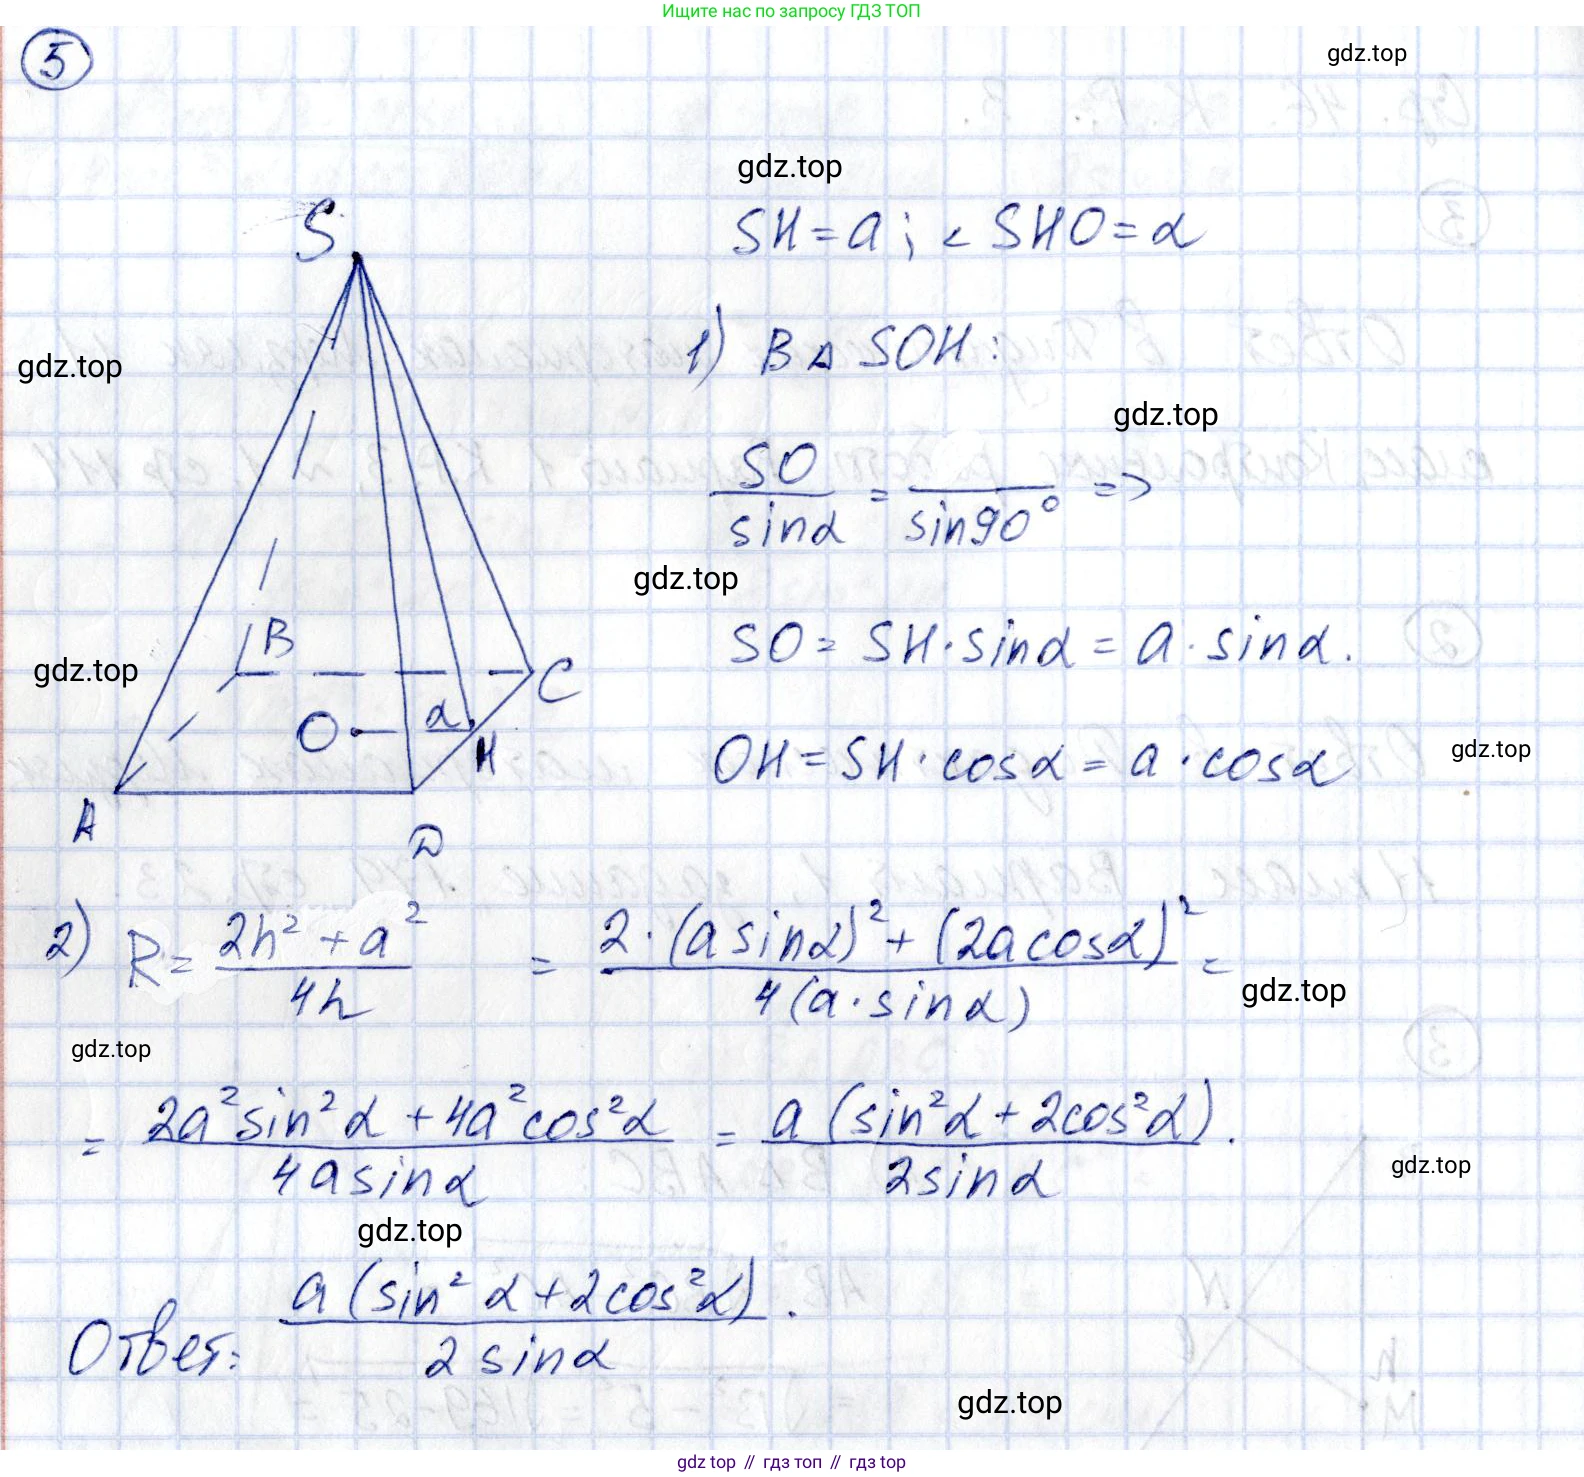 Ищите нас по запросу ГДЗ ТОП
5
gdz.top
gdz.top
S
SH = a; ∠ SHO = α
1) В △ SOH:
gdz.top
gdz.top
SO / sinα = / sin90° =>
gdz.top
B
SO = SH · sinα = a · sinα.
gdz.top
C
O
α
H
OH = SH · cosα = a · cosα
gdz.top
A
D
2) R = (2h² + a²) / 4h = (2 · (a sinα)² + (2a cosα)²) / 4(a · sinα) =
gdz.top
gdz.top
= (2a² sin²α + 4a² cos²α) / 4a sinα = a (sin²α + 2cos²α) / 2sinα.
gdz.top
gdz.top
Ответ: a (sin²α + 2cos²α) / 2 sinα.
gdz.top
gdz.top // гдз топ // гдз top